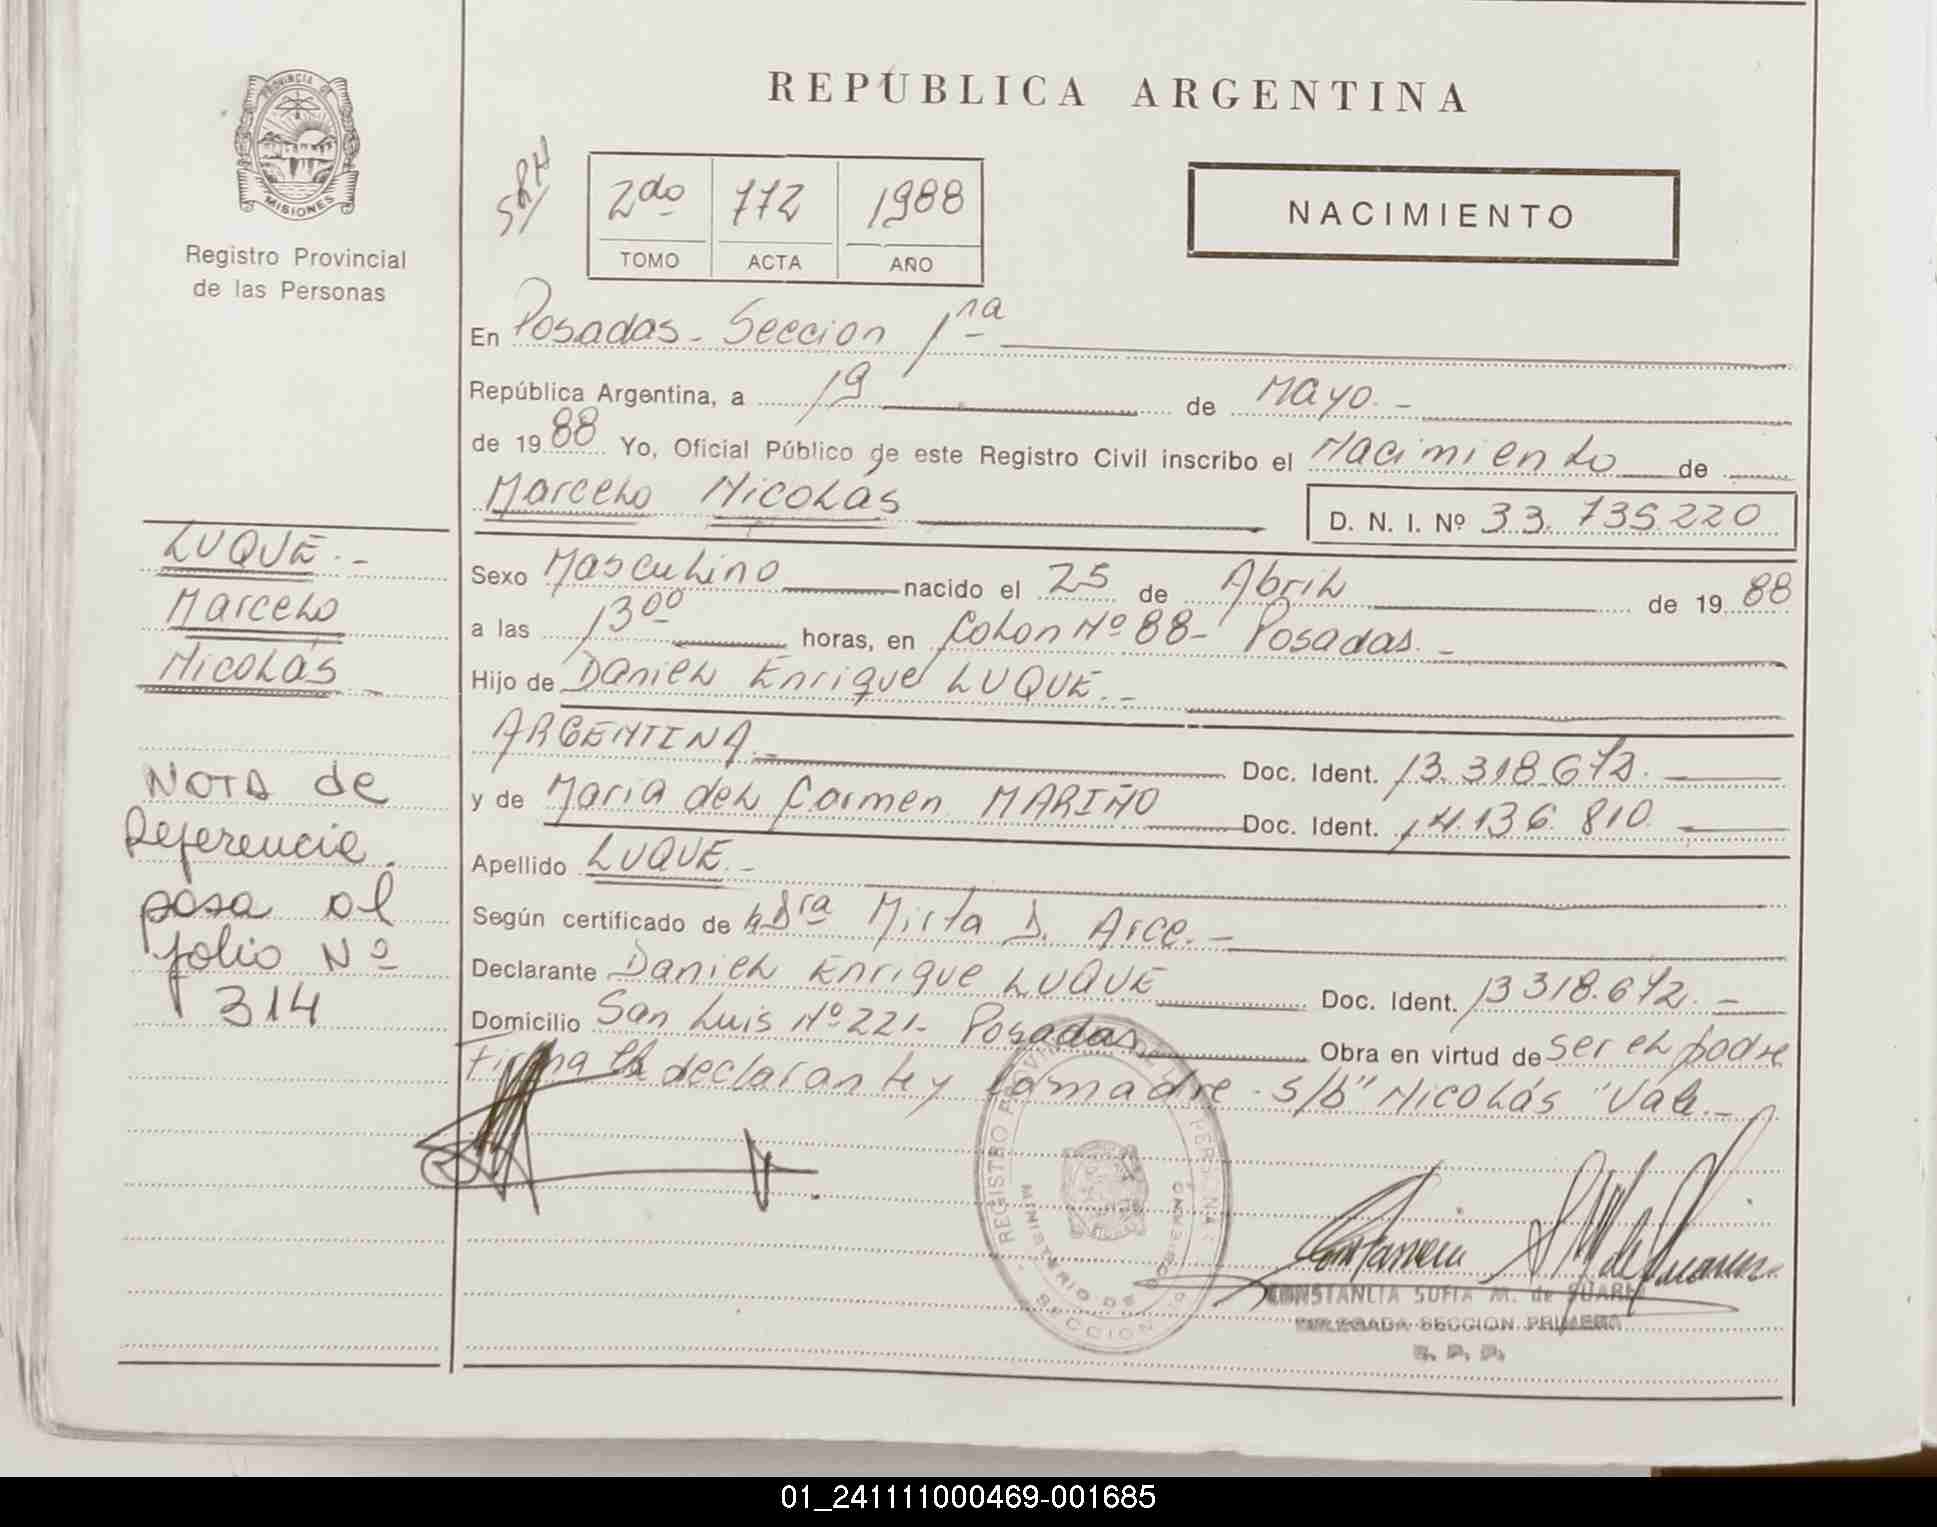 PROVINCIA DE
MISIONES
Registro Provincial
de las Personas
REPUBLICA ARGENTINA
SRH
2do 772 1988
TOMO ACTA AÑO
NACIMIENTO
En Posadas - Seccion 1ra
República Argentina, a 19 de Mayo.-
de 1988 Yo, Oficial Público de este Registro Civil inscribo el Nacimiento de
Marcelo Nicolás
D. N. I. Nº 33.735.220
Sexo Masculino nacido el 25 de Abril de 1988
a las 13 00 horas, en Colon Nº 88 - Posadas.-
Hijo de Daniel Enrique LUQUE.-
ARGENTINA.- Doc. Ident. 13.318.672.
y de Maria del Carmen MARIÑO Doc. Ident. 14.136.810
Apellido LUQUE.-
Según certificado de la Dra Mirta D. Arce.-
Declarante Daniel Enrique LUQUE Doc. Ident. 13318.672.-
Domicilio San Luis Nº 221- Posadas Obra en virtud de ser el padre
Firma el declarante y la madre - S/b "Nicolás" Vale.-
LUQUE.-
Marcelo
Nicolás
NOTA de
Referencia.
pasa al
folio Nº
314
REGISTRO PROVINCIAL DE LAS PERSONAS
MINISTERIO DE GOBIERNO
SECCION 1a
CONSTANCIA SOFIA M. de SUAREZ
DELEGADA SECCION PRIMERA
R. P. P.
01_241111000469-001685